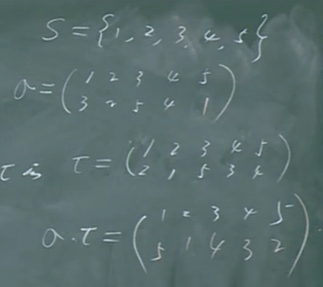 S = {1, 2, 3, 4, 5}
σ = ( 1 2 3 4 5
3 2 5 4 1 )
τ = ( 1 2 3 4 5
2 1 5 3 4 )
σ·τ = ( 1 2 3 4 5
5 1 4 3 2 )